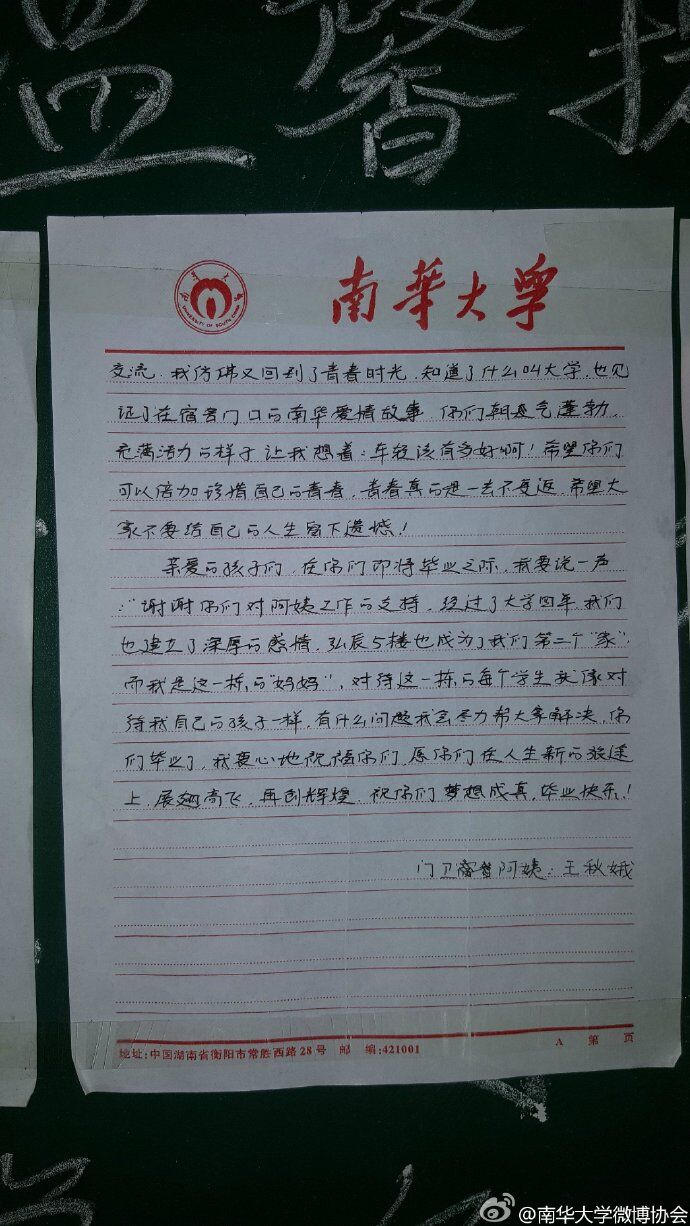 温馨提
南华大学
UNIVERSITY OF SOUTH CHINA
交流,我仿彿又回到了青春时光,知道了什么叫大学,也见
证了在宿舍门口的南华爱情故事,你们朝夕气蓬勃,
充满活力的样子让我想着:年轻该有多好啊!希望你们
可以倍加珍惜自己的青春,青春真的是一去不复返,希望大
家不要给自己的人生留下遗憾!
亲爱的孩子们,在你们即将毕业之际,我要说一声
:"谢谢你们对阿姨工作的支持,经过了大学四年,我们
也建立了深厚的感情,弘辰5楼也成为了我们第二个"家"
而我是这一栋的"妈妈",对待这一栋的每个学生我像对
待我自己的孩子一样,有什么问题我会尽力帮大家解决,你
们毕业了,我衷心地祝福你们,愿你们在人生新的旅途
上,展翅高飞,再创辉煌,祝你们梦想成真,毕业快乐!
门卫宿管阿姨:王秋娥
地址:中国湖南省衡阳市常胜西路28号 邮 编:421001
A 第 页
@南华大学微博协会